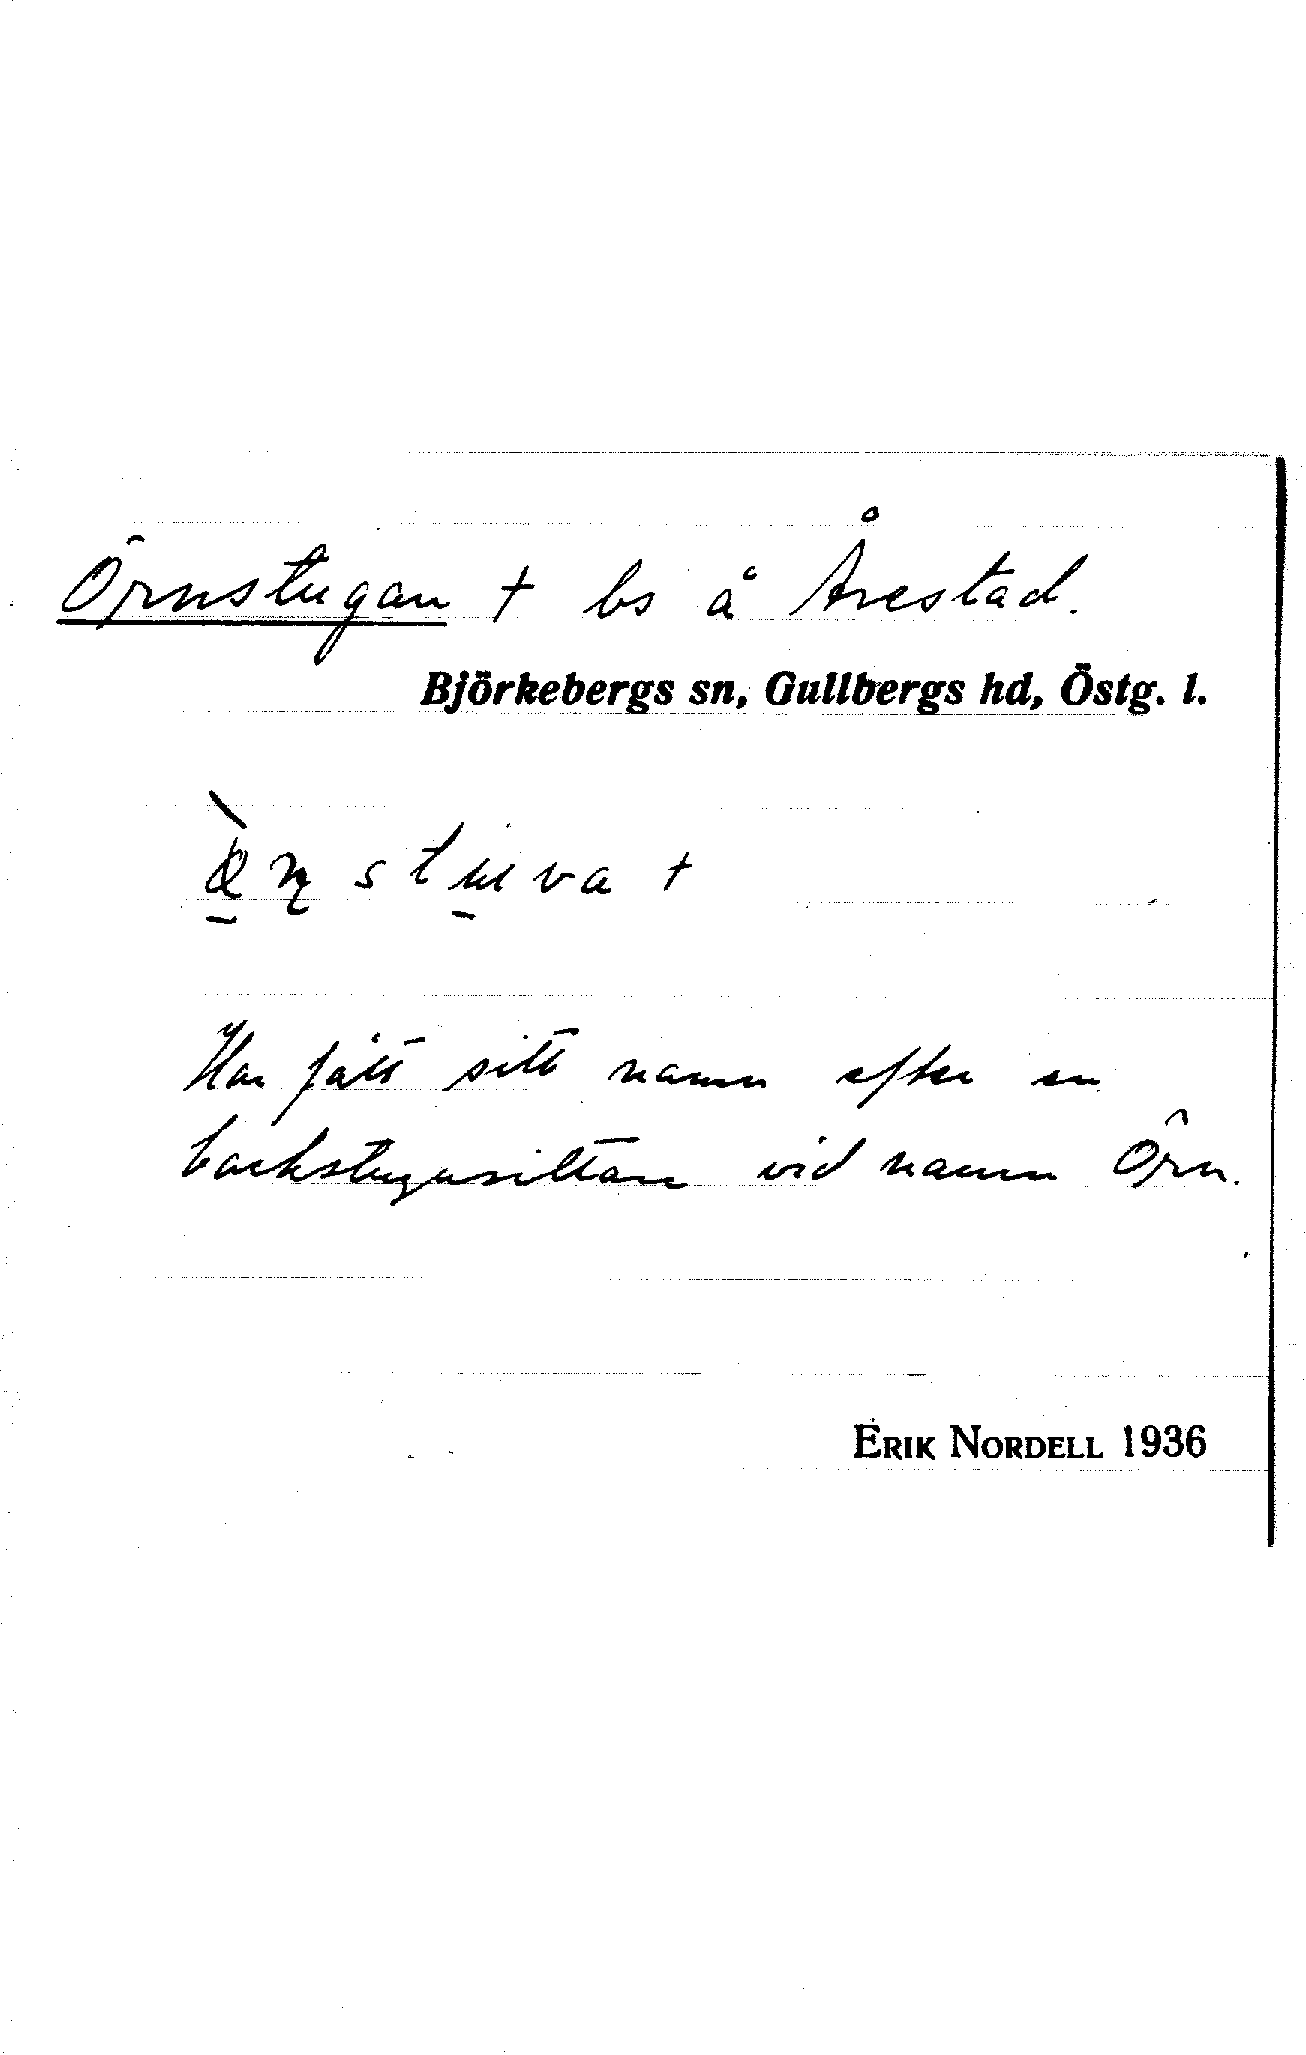 Örnstugan † bs å Årestad.
Björkebergs sn, Gullbergs hd, Östg. l.
Har fått sitt namn efter en
backstugusittare vid namn Örn.
ERIK NORDELL 1936